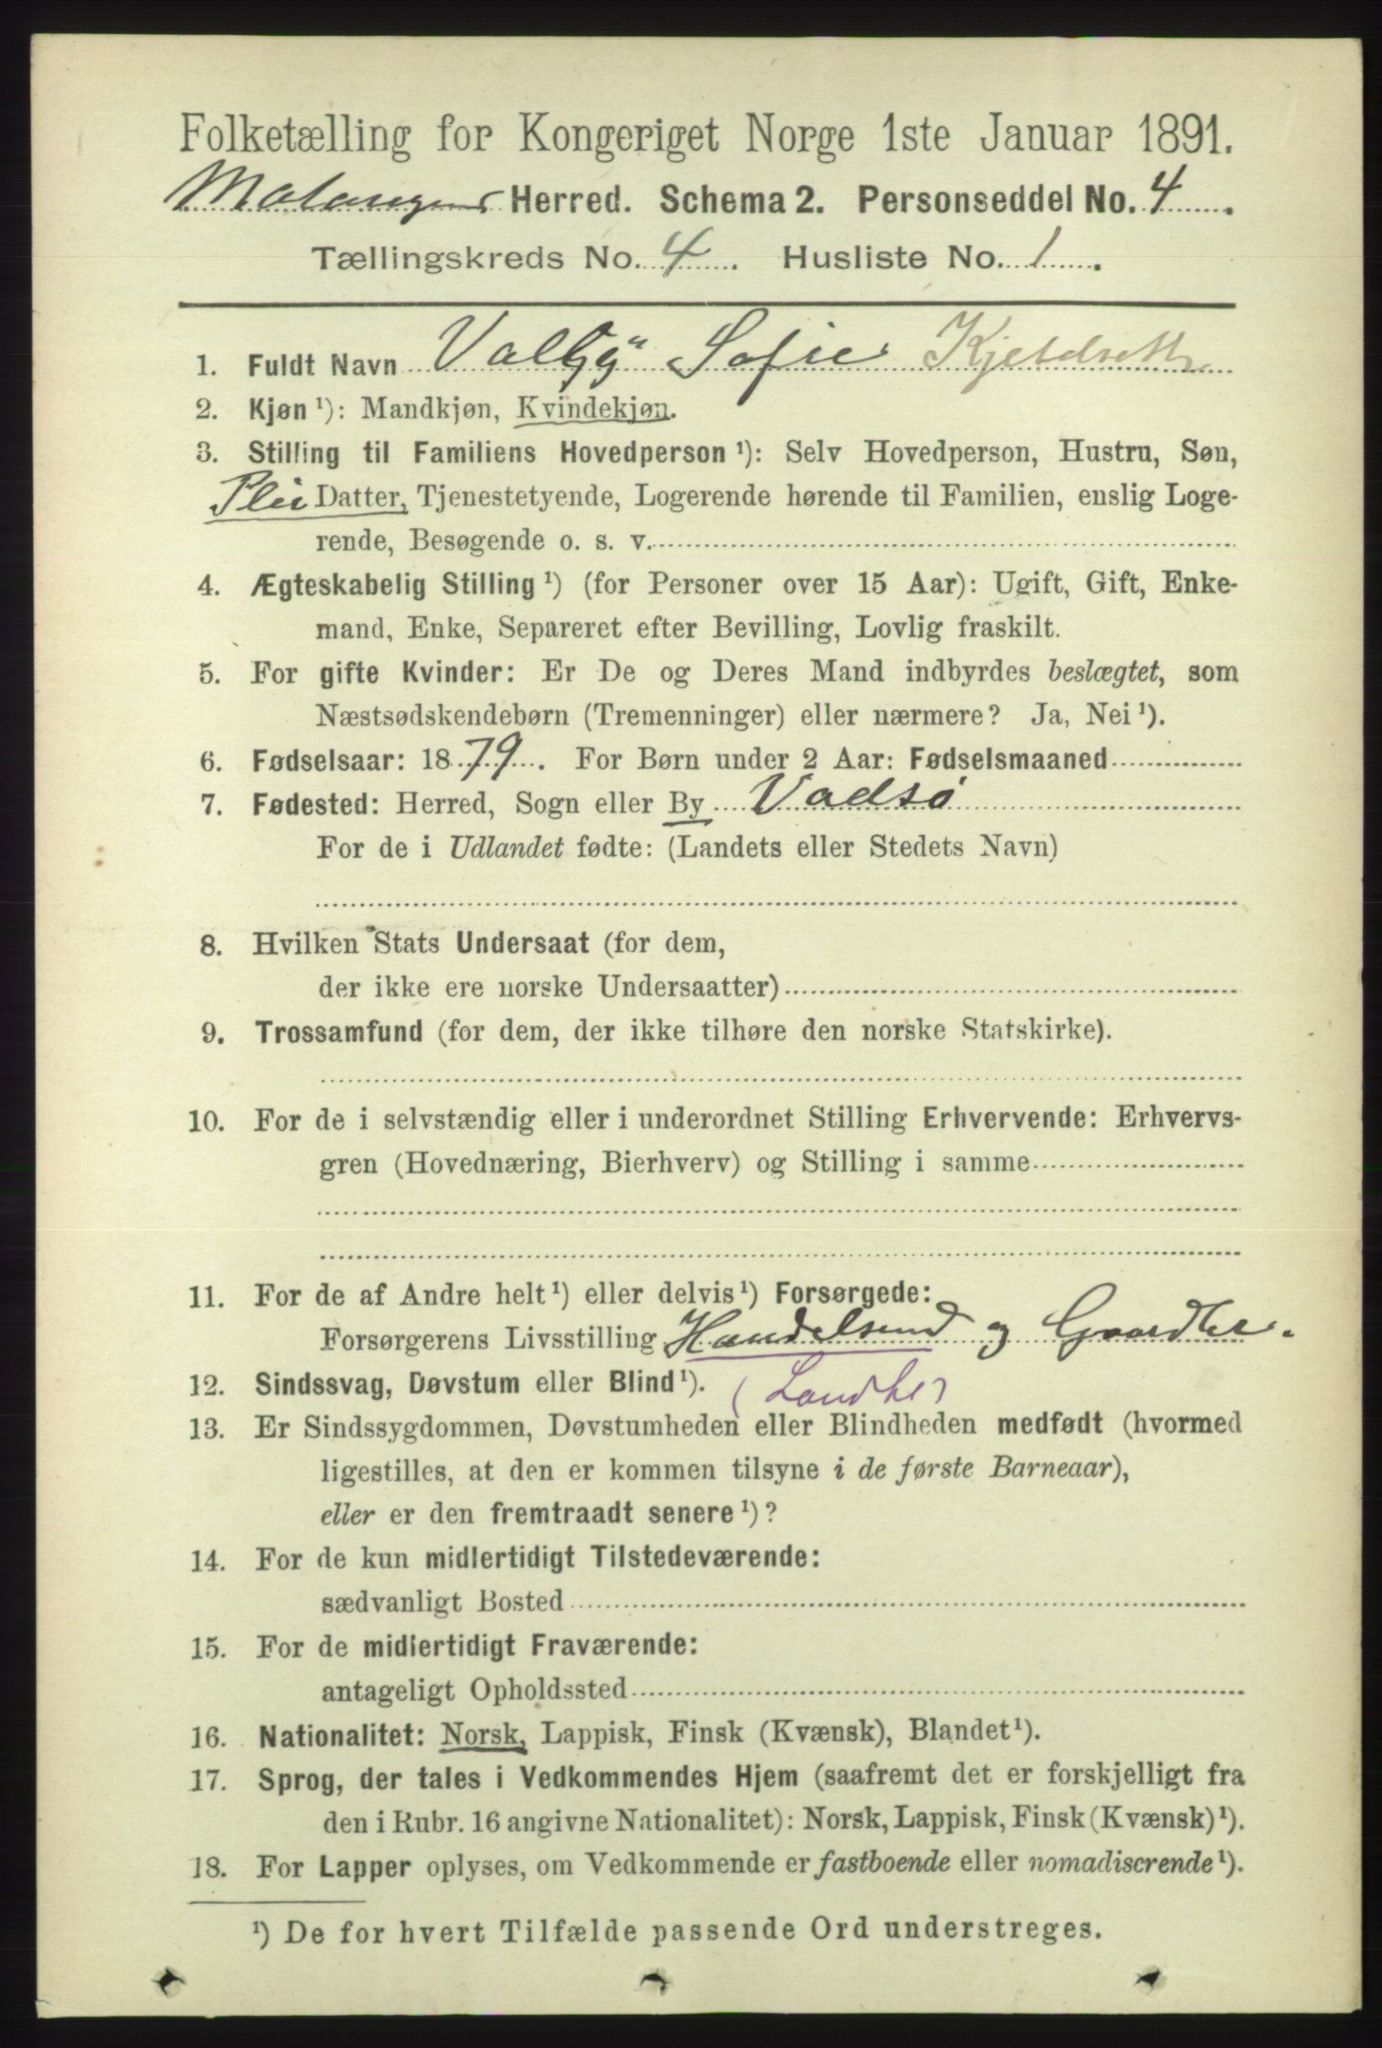 Folketælling for Kongeriget Norge 1ste Januar 1891.
Malangen Herred. Schema 2. Personseddel No. 4.
Tællingskreds No. 4. Husliste No. 1.
1. Fuldt Navn Sofie Kjeldseth
2. Kjøn ¹): Mandkjøn, Kvindekjøn.
3. Stilling til Familiens Hovedperson ¹): Selv Hovedperson, Hustru, Søn,
Pleie Datter, Tjenestetyende, Logerende hørende til Familien, enslig Loge-
rende, Besøgende o. s. v.
4. Ægteskabelig Stilling ¹) (for Personer over 15 Aar): Ugift, Gift, Enke-
mand, Enke, Separeret efter Bevilling, Lovlig fraskilt.
5. For gifte Kvinder: Er De og Deres Mand indbyrdes beslægtet, som
Næstsødskendebørn (Tremenninger) eller nærmere? Ja, Nei ¹).
6. Fødselsaar: 1879. For Børn under 2 Aar: Fødselsmaaned
7. Fødested: Herred, Sogn eller By Vadsø
For de i Udlandet fødte: (Landets eller Stedets Navn)
8. Hvilken Stats Undersaat (for dem,
der ikke ere norske Undersaatter)
9. Trossamfund (for dem, der ikke tilhøre den norske Statskirke).
10. For de i selvstændig eller i underordnet Stilling Erhvervende: Erhvervs-
gren (Hovednæring, Bierhverv) og Stilling i samme
11. For de af Andre helt ¹) eller delvis ¹) Forsørgede:
Forsørgerens Livsstilling Handelsmd og Gaardbr.
12. Sindssvag, Døvstum eller Blind ¹). (Landhr)
13. Er Sindssygdommen, Døvstumheden eller Blindheden medfødt (hvormed
ligestilles, at den er kommen tilsyne i de første Barneaar),
eller er den fremtraadt senere ¹)?
14. For de kun midlertidigt Tilstedeværende:
sædvanligt Bosted
15. For de midlertidigt Fraværende:
antageligt Opholdssted
16. Nationalitet: Norsk, Lappisk, Finsk (Kvænsk), Blandet ¹).
17. Sprog, der tales i Vedkommendes Hjem (saafremt det er forskjelligt fra
den i Rubr. 16 angivne Nationalitet): Norsk, Lappisk, Finsk (Kvænsk) ¹).
18. For Lapper oplyses, om Vedkommende er fastboende eller nomadiserende ¹).
¹) De for hvert Tilfælde passende Ord understreges.